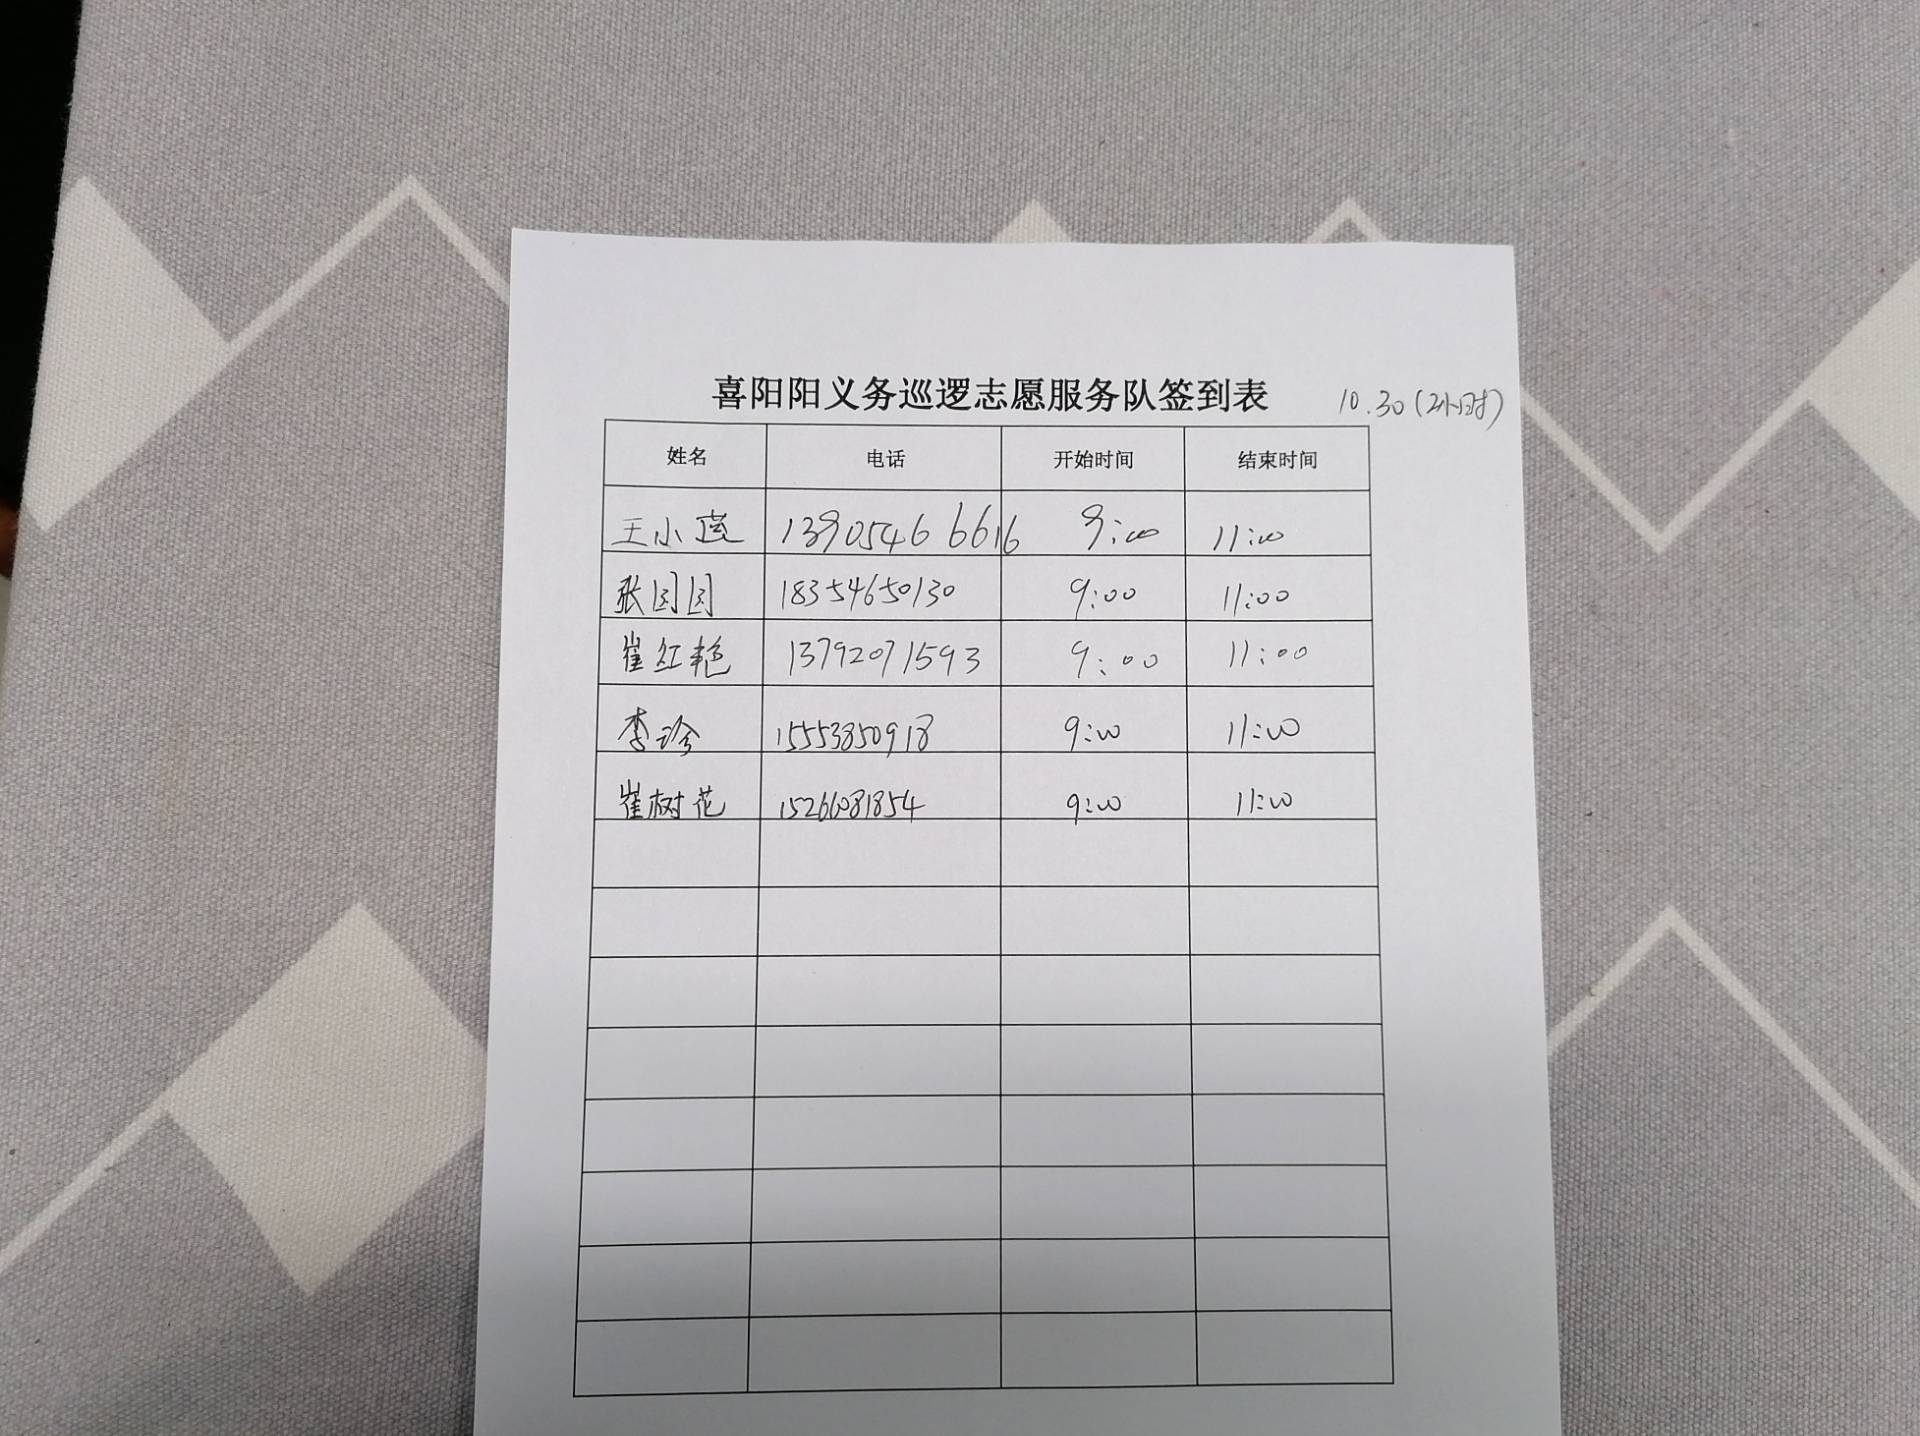 喜阳阳义务巡逻志愿服务队签到表 10.30(2小时)
姓名 电话 开始时间 结束时间
王小 13905466616 9:00 11:00
张园园 18354650130 9:00 11:00
崔红艳 13792071593 9:00 11:00
李珍 15553850918 9:00 11:00
崔树花 15266081854 9:00 11:00